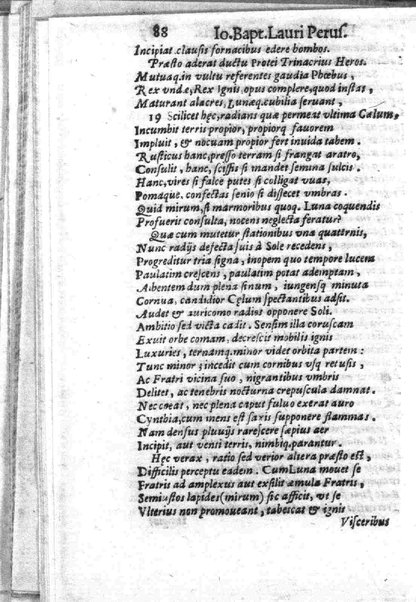 88 Io. Bapt. Lauri Perus.
Incipiat clausis fornacibus edere bombos.
Præsto aderat ductu Protei Trinacrius Heros.
Mutuaq. in vultu referentes gaudia Phœbus,
Rex vndæ, Rex Ignis opus complere, quod instas,
Maturant alacres, Lunæq. cubilia seruant,
19 Scilicet hęc, radians quæ permeat vltima Cælum,
Incumbit terris propior, propiorq. fauorem
Impluit, & nocuam propior fert inuida tabem.
Rusticus hanc, presso terram si frangat aratro,
Consulit, hanc, scissis si mandet semina sulcis.
Hanc, vires si falce putes si colligat vuas,
Pomaque. confectas senio si dissecet vmbras.
Quid mirum, si marmoribus quoq. Luna coquendis
Profuerit consulta, nocens neglecta feratur?
Quæ cum mutetur stationibus vna quatternis,
Nunc radijs defecta suis à Sole recedens,
Progreditur tria signa, inopem quo tempore lucem
Paulatim crescens, paulatim potat ademptam,
Albentem dum plena sinum, iungensq; minuta
Cornua, candidior Cęlum spectantibus adsit.
Audet & auricomo radios opponere Soli.
Ambitio sed victa cadit. Sensim illa coruscam
Exuit orbe comam, decrescit mobilis ignis
Luxuries, ternamq. minor videt orbita partem:
Tunc minor; incedit cum cornibus vsq retusis,
Ac Fratri vicina suo, nigrantibus vmbris
Delitet, ac tenebris nocturna crepuscula damnat.
Nec coeat, nec plena caput fuluo exerat auro
Cynthia, cum mens est saxis supponere flammas.
Nam densus pluuijs rarescere sæpius aer
Incipit, aut venti terris, nimbiq. parantur.
Hęc verax, ratio sed verior altera præsto est,
Difficilis perceptu eadem. Cum Luna mouet se
Fratris ad amplexus aut exsilit æmula Fratris,
Semiustos lapides (mirum) sic afficit, vt se
Vlterius non promoueant, tabescat & ignis
Visceribus